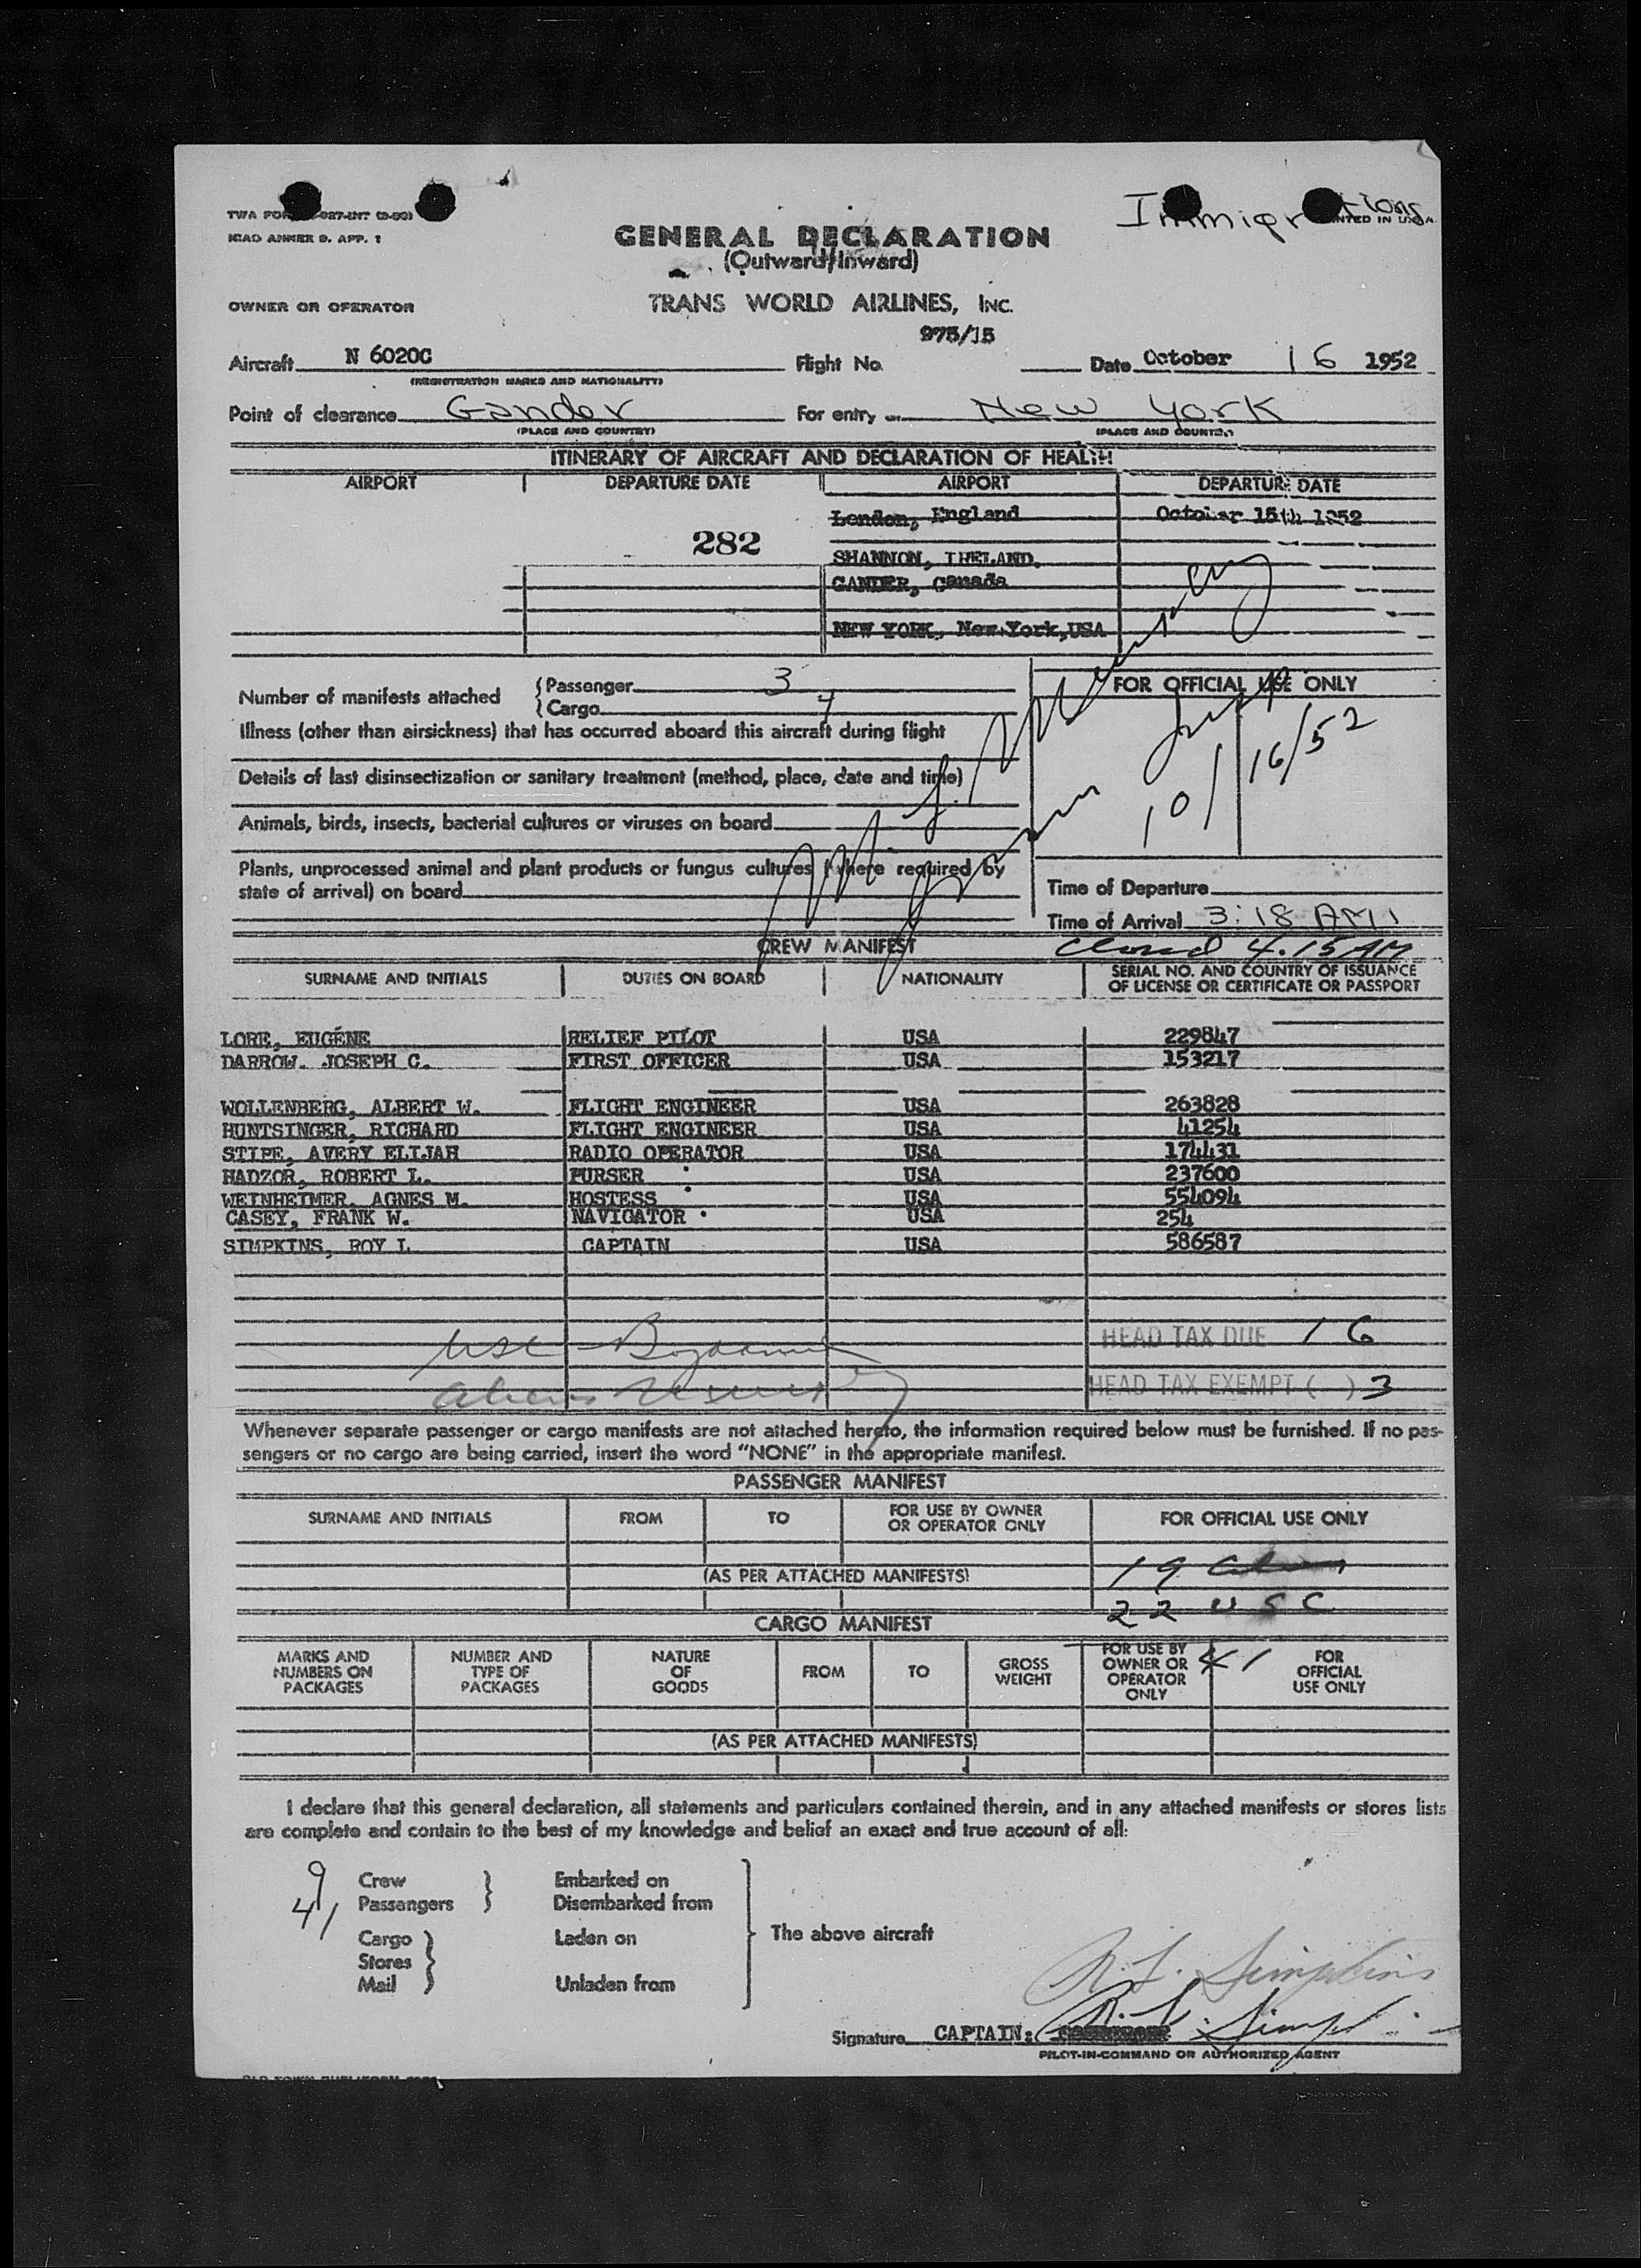 Immigrations
ICAO ANNEX 9. APP. 1
GENERAL DECLARATION
(Outward/Inward)
OWNER OR OPERATOR TRANS WORLD AIRLINES, INC.
975/15
Aircraft N 6020C Flight No. Date October 16 1952
(REGISTRATION MARKS AND NATIONALITY)
Point of clearance Gander For entry New York
(PLACE AND COUNTRY) (PLACE AND COUNTRY)
ITINERARY OF AIRCRAFT AND DECLARATION OF HEALTH
AIRPORT DEPARTURE DATE AIRPORT DEPARTURE DATE
London, England October 15th 1952
282
SHANNON, IRELAND.
GANDER, Canada
NEW YORK, New York, USA
Number of manifests attached
Passenger 3
Cargo 4
FOR OFFICIAL USE ONLY
10/16/52
Illness (other than airsickness) that has occurred aboard this aircraft during flight
Details of last disinsectization or sanitary treatment (method, place, date and time)
Animals, birds, insects, bacterial cultures or viruses on board
Plants, unprocessed animal and plant products or fungus cultures (where required by
state of arrival) on board
Time of Departure
Time of Arrival 3:18 AM
Closed 4.15 AM
CREW MANIFEST
SURNAME AND INITIALS DUTIES ON BOARD NATIONALITY SERIAL NO. AND COUNTRY OF ISSUANCE
OF LICENSE OR CERTIFICATE OR PASSPORT
LORE, EUGENE RELIEF PILOT USA 229847
DARROW. JOSEPH C. FIRST OFFICER USA 153217
WOLLENBERG, ALBERT W. FLIGHT ENGINEER USA 263828
HUNTSINGER, RICHARD FLIGHT ENGINEER USA 41254
STIPE, AVERY ELIJAH RADIO OPERATOR USA 174431
HADZOR, ROBERT L. PURSER USA 237600
WEINHEIMER, AGNES M. HOSTESS USA 554094
CASEY, FRANK W. NAVIGATOR USA 254
SIMPKINS, ROY L CAPTAIN USA 586587
HEAD TAX DUE 16
USC
HEAD TAX EXEMPT ( ) 3
Aliens
Whenever separate passenger or cargo manifests are not attached hereto, the information required below must be furnished. If no pas-
sengers or no cargo are being carried, insert the word "NONE" in the appropriate manifest.
PASSENGER MANIFEST
SURNAME AND INITIALS FROM TO FOR USE BY OWNER
OR OPERATOR ONLY FOR OFFICIAL USE ONLY
(AS PER ATTACHED MANIFESTS) 19 Aliens
22 USC
CARGO MANIFEST
41
MARKS AND
NUMBERS ON
PACKAGES
NUMBER AND
TYPE OF
PACKAGES
NATURE
OF
GOODS
FROM
TO
GROSS
WEIGHT
FOR USE BY
OWNER OR
OPERATOR
ONLY
FOR
OFFICIAL
USE ONLY
(AS PER ATTACHED MANIFESTS)
I declare that this general declaration, all statements and particulars contained therein, and in any attached manifests or stores lists
are complete and contain to the best of my knowledge and belief an exact and true account of all:
9 Crew Embarked on
41 Passengers Disembarked from
Cargo Laden on The above aircraft
Stores
Mail Unladen from
R. L. Simpkins
Signature CAPTAIN: R. L. Simpkins
PILOT-IN-COMMAND OR AUTHORIZED AGENT